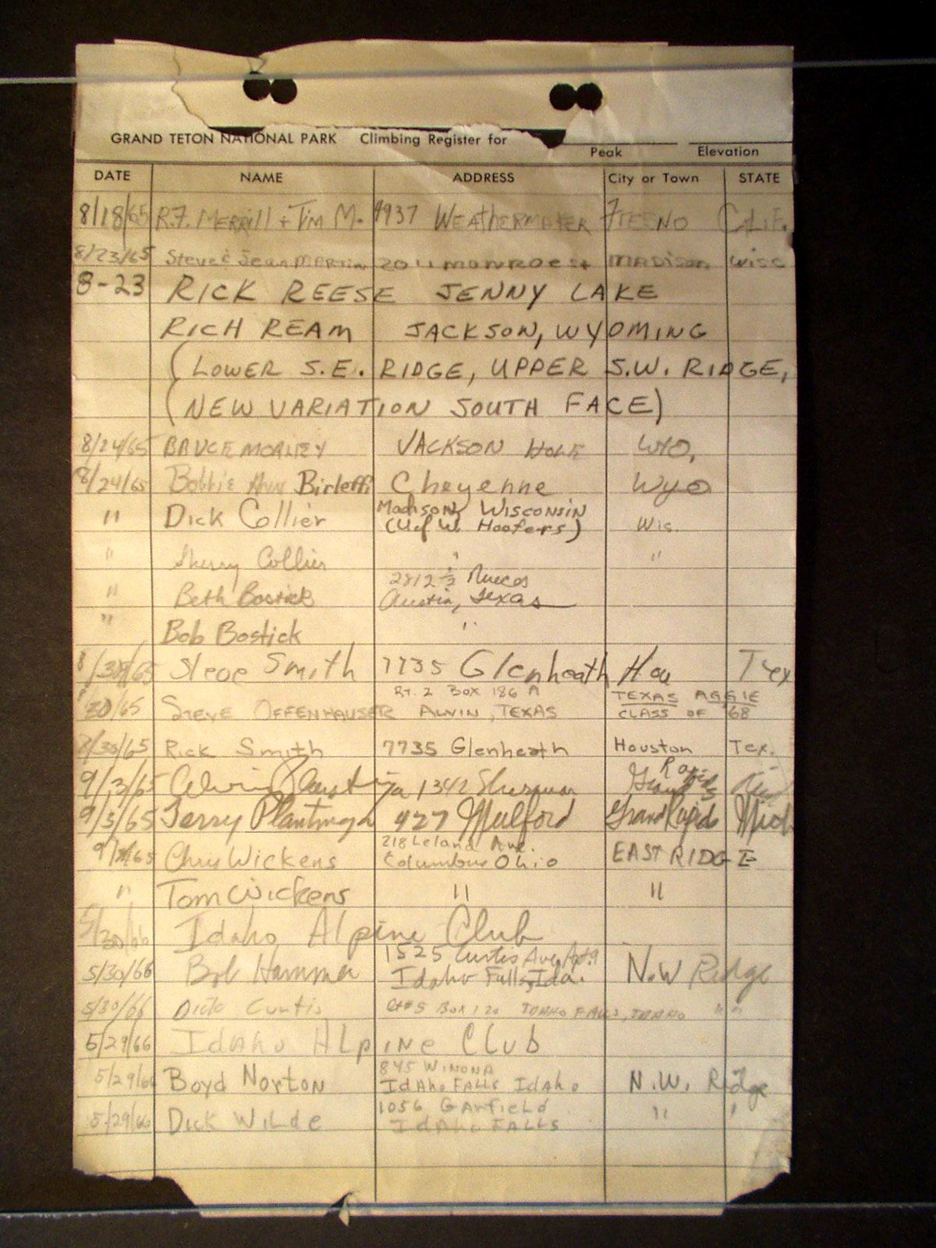 GRAND TETON NATIONAL PARK Climbing Register for
Peak Elevation
DATE NAME ADDRESS City or Town STATE
8/18/65 R.F. MERRILL + TIM M. 4937 WEATHERMAKER FRESNO CALIF.
8/23/65 Steve & Jean MARTIN 2011 MONROE St MADISON WISC
8-23 RICK REESE JENNY LAKE
RICH REAM JACKSON, WYOMING
(LOWER S.E. RIDGE, UPPER S.W. RIDGE,
(NEW VARIATION SOUTH FACE)
8/24/65 BRUCE MORLEY JACKSON HOLE WYO.
8/24/65 Bobbie Ann Birleffi Cheyenne Wyo
" Dick Collier Madison, Wisconsin
(U of W Hoofers) Wis.
" Sherry Collier " "
" Beth Bostick 2812 ½ Nueces
Austin, Texas
" Bob Bostick "
8/30/65 Steve Smith 7735 Glenheath Hou Tex
RT. 2 BOX 186 A TEXAS AGGIE
30/65 STEVE OFFENHAUSER ALVIN, TEXAS CLASS OF '68
8/30/65 Rick Smith 7735 Glenheath Houston Tex.
9/3/65 Alvin Plantinga 1342 Sherman Grand Rapids
9/3/65 Terry Plantinga 427 Mulford Grand Rapids Mich
Chris Wickens 218 Leland Ave.
Columbus Ohio EAST RIDGE
" Tom Wickens " "
5/30/66 Idaho Alpine Club
5/30/66 Bob Hammer 1525 Curtis Ave, Apt. 9
Idaho Falls, Ida. N.W Ridge
5/30/66 Dick Curtis Rt #5 Box 120 IDAHO FALLS, IDAHO " "
5/29/66 Idaho Alpine Club
5/29/66 Boyd Norton 845 WINONA
IdAho FALLS Idaho N.W. Ridge
5/29/66 Dick Wilde 1056 Garfield
IdAho FALLS " "